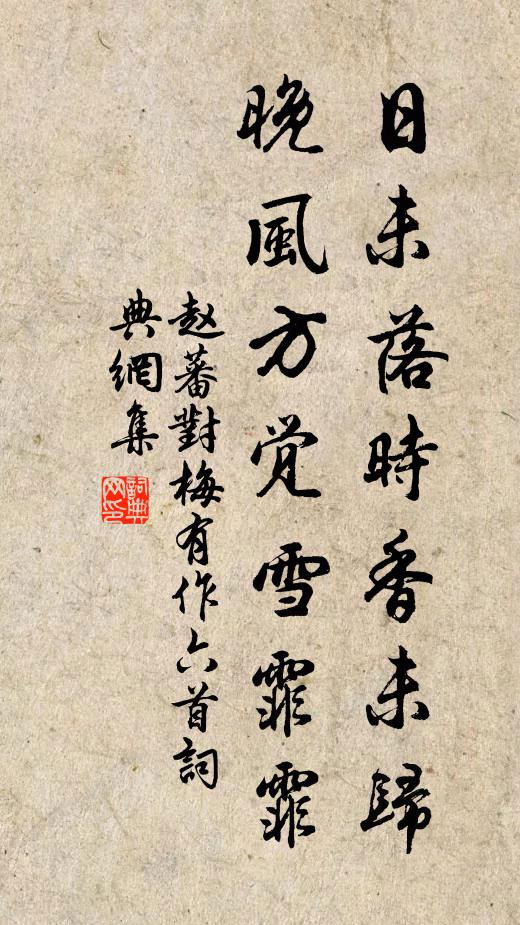 日未落時香未歸
晚風方觉雪霏霏
赵蕃對梅有作六首詞
典網集
詞典
网印